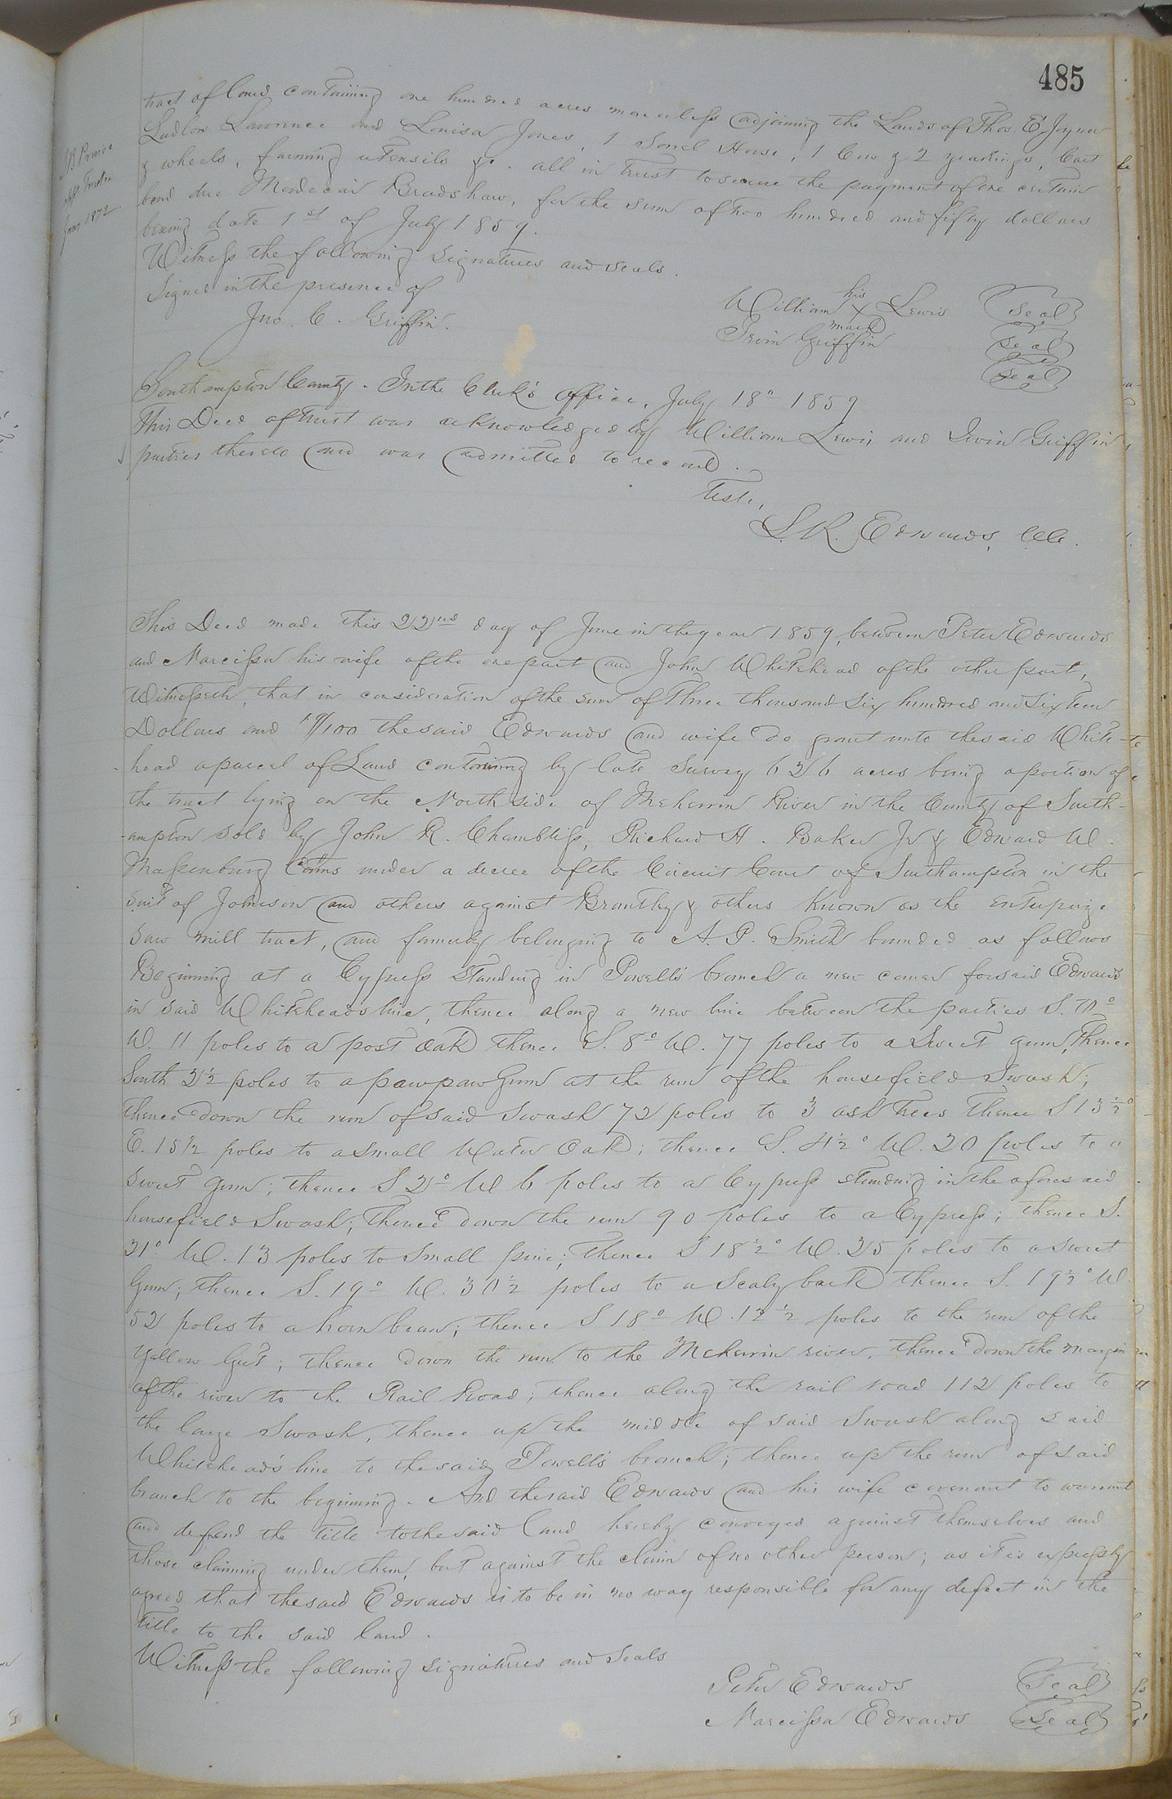 485
tract of land containing one hundred acres more or less adjoining the Lands of Thos. E. Joyner
Ludlow Lawrence and Louisa Jones, 1 Sorrel Horse, 1 Cow & 2 yearlings, Cart
& wheels, farming utensils &c. all in trust to secure the payment of one certain
bond due Mordecai Bradshaw, for the sum of two hundred and fifty dollars
bearing date 1st of July 1859.
Witness the following signatures and seals.
Signed in the presence of
Jno. C. Griffin.
his
William X Lewis Seal
mark
Irvin Griffin Seal
Seal
Southampton County. In the Clerk's office, July 18th 1859
This Deed of trust was acknowledged by William Lewis and Irvin Griffin
parties thereto and was admitted to record.
Teste,
L. R. Edwards, Clk.
This Deed made this 22nd day of June in the year 1859, between Peter Edwards
and Narcissa his wife of the one part and John Whitehead of the other part,
Witnesseth, that in consideration of the sum of Three thousand Six hundred and Sixteen
Dollars and /100 the said Edwards and wife do grant unto the said White-
head a parcel of Land containing by late survey 626 acres being a portion of
the tract lying on the North side of Meherrin River in the County of South-
-ampton sold by John R. Chambliss, Richard H. Baker Jr & Edward W.
Massenburg Comrs under a decree of the Circuit Court of Southampton in the
suit of Johnson and others against Brantly & others Known as the enterprize
Saw mill tract, and formerly belonging to A. P. Smith bounded as follows
Beginning at a Cypress standing in Powell's branch a new corner for said Edwards
in said Whiteheads line, thence along a new line between the parties S. 70°
W. 11 poles to a post oak thence S. 8° W. 77 poles to a Sweet gum, Thence
South 2½ poles to a pawpaw Gum at the run of the housefield Swash;
thence down the run of said Swash 72 poles to 3 ash trees Thence S 13½°
E. 15½ poles to a small Water Oak; thence S. 4½° W. 20 poles to a
sweet gum; thence S 2° W 6 poles to a Cypress standing in the aforesaid
housefield Swash; Thence down the run 90 poles to a Cypress; thence S.
21° W. 13 poles to Small pine; thence S 18½° W. 25 poles to a sweet
Gum; thence S. 19° W. 30½ poles to a Scaly bark thence S. 19½° W.
52 poles to a horn beam; thence S 18° W. 12½ poles to the run of the
Yellow Gut; thence down the run to the Meherrin river, thence down the margin
of the river to the Rail Road; thence along the rail road 112 poles to
the large Swash, thence up the middle of said Swash along said
Whitehead's line to the said Powell's branch; thence up the run of said
branch to the beginning. And the said Edwards and his wife covenant to warrant
and defend the title to the said land hereby conveyed against themselves and
those claiming under them, but against the claim of no other person; as it is expressly
agreed that the said Edwards is to be in no way responsible for any defect in the
title to the said land.
Witness the following signatures and seals
Peter Edwards Seal
Narcissa Edwards Seal